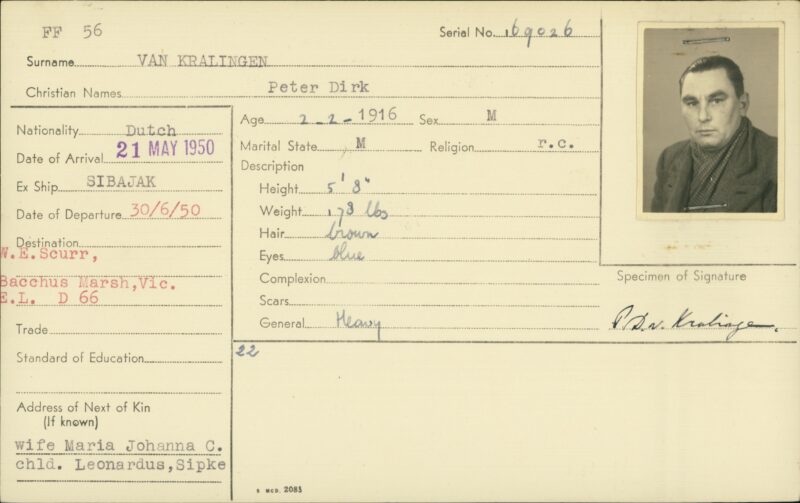 FF 56
Serial No. 169026
Surname VAN KRALINGEN
Christian Names Peter Dirk
Nationality Dutch
Date of Arrival 21 MAY 1950
Ex Ship SIBAJAK
Date of Departure 30/6/50
Destination
W.E.Scurr,
Bacchus Marsh,Vic.
E.L. D 66
Trade
Standard of Education
Address of Next of Kin
(If known)
wife Maria Johanna C.
chld. Leonardus,Sipke
Age 2-2-1916 Sex M
Marital State M Religion r.c.
Description
Height 5' 8"
Weight 178 lbs
Hair brown
Eyes blue
Complexion
Scars
General Heavy
22
Specimen of Signature
P.D.v. Kralingen.
S MCD. 2085